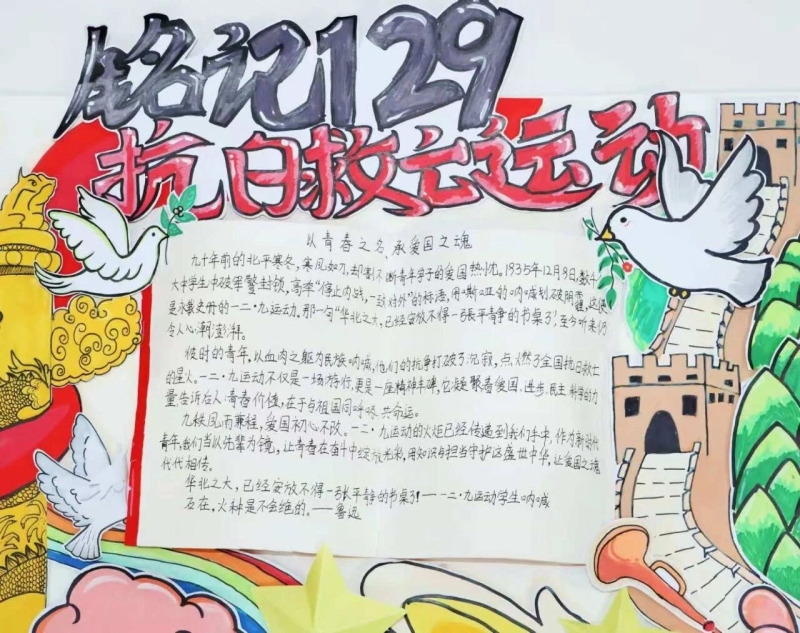 铭记129
抗日救亡运动
以青春之名,承爱国之魂
九十年前的北平寒冬,寒风如刀,却割不断青年学子的爱国热忱。1935年12月9日,数千
大中学生冲破军警封锁,高举"停止内战,一致对外"的标语,用嘶哑的呐喊划破阴霾,这便
是永载史册的一二·九运动。那一句"华北之大,已经安放不得一张平静的书桌了",至今听来仍
令人心潮澎湃。
彼时的青年,以血肉之躯为民族呐喊,他们的抗争打破了沉寂,点燃了全国抗日救亡
的星火。一二·九运动不仅是一场游行,更是一座精神丰碑,它凝聚着爱国、进步、民主、科学的力
量告诉后人:青春价值,在于与祖国同呼吸、共命运。
九秩风雨兼程,爱国初心不改。一二·九运动的火炬已经传递到我们手中,作为新时代
青年,我们当以先辈为镜,让青春在奋斗中绽放光彩,用知识与担当守护这盛世中华,让爱国之魂
代代相传。
华北之大,已经安放不得一张平静的书桌了!——一二·九运动学生呐喊
石在,火种是不会绝的。——鲁迅